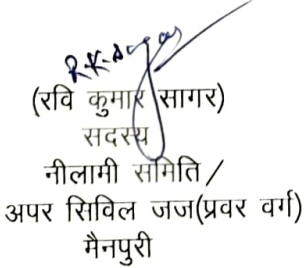 R.K. Sagar
(रवि कुमार सागर)
सदस्य
नीलामी समिति/
अपर सिविल जज(प्रवर वर्ग)
मैनपुरी